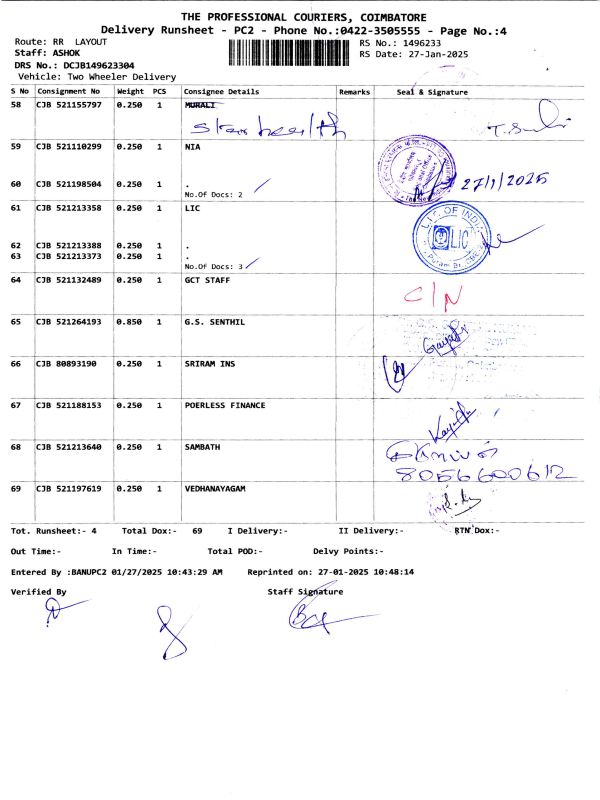 THE PROFESSIONAL COURIERS, COIMBATORE
Delivery Runsheet - PC2 - Phone No.:0422-3505555 - Page No.:4
Route: RR LAYOUT RS No.: 1496233
Staff: ASHOK RS Date: 27-Jan-2025
DRS No.: DCJB149623304
Vehicle: Two Wheeler Delivery
S No Consignment No Weight PCS Consignee Details Remarks Seal & Signature
58 CJB 521155797 0.250 1 MURALI
Star health
59 CJB 521110299 0.250 1 NIA
27/1/2025
60 CJB 521198504 0.250 1 .
No.Of Docs: 2
61 CJB 521213358 0.250 1 LIC
L.I.C. OF INDIA
LIC
62 CJB 521213388 0.250 1 .
63 CJB 521213373 0.250 1 .
No.Of Docs: 3
64 CJB 521132489 0.250 1 GCT STAFF C/N
65 CJB 521264193 0.850 1 G.S. SENTHIL
66 CJB 80893190 0.250 1 SRIRAM INS
67 CJB 521188153 0.250 1 POERLESS FINANCE
68 CJB 521213640 0.250 1 SAMBATH
8056600612
69 CJB 521197619 0.250 1 VEDHANAYAGAM
Tot. Runsheet:- 4 Total Dox:- 69 I Delivery:- II Delivery:- RTN Dox:-
Out Time:- In Time:- Total POD:- Delvy Points:-
Entered By :BANUPC2 01/27/2025 10:43:29 AM Reprinted on: 27-01-2025 10:48:14
Verified By Staff Signature